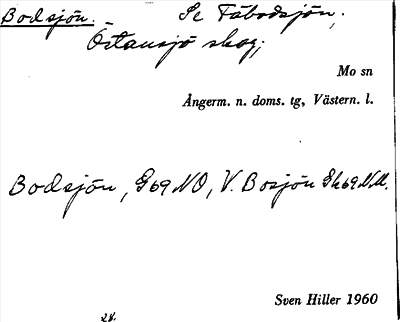 Bodsjön. Se Fäbodsjön.
Östansjö skog;
Mo sn
Ångerm. n. doms. tg, Västern. l.
Bodsjön, G69 NO, V. Bosjön Gk69 NV.
Sven Hiller 1960